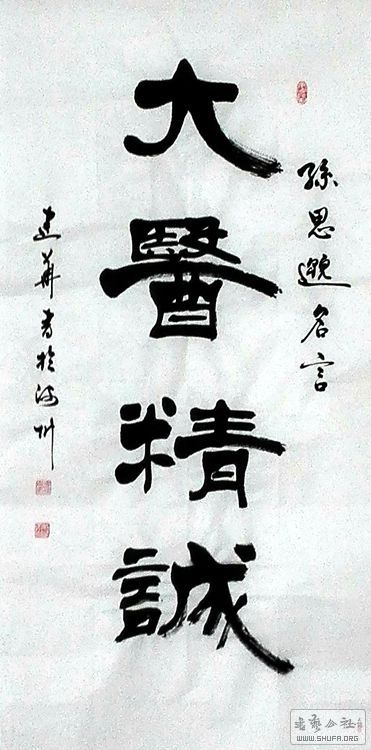 孫思邈名言
大醫精誠
建華書於滄州
WWW.SHUFA.ORG